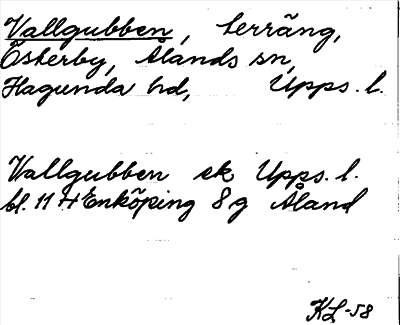 Vallgubben, terräng,
Österby, Ålands sn,
Hagunda hd, Upps. l.
Vallgubben ek Upps. l.
bl. 11 H Enköping 8 g Åland
KL-58